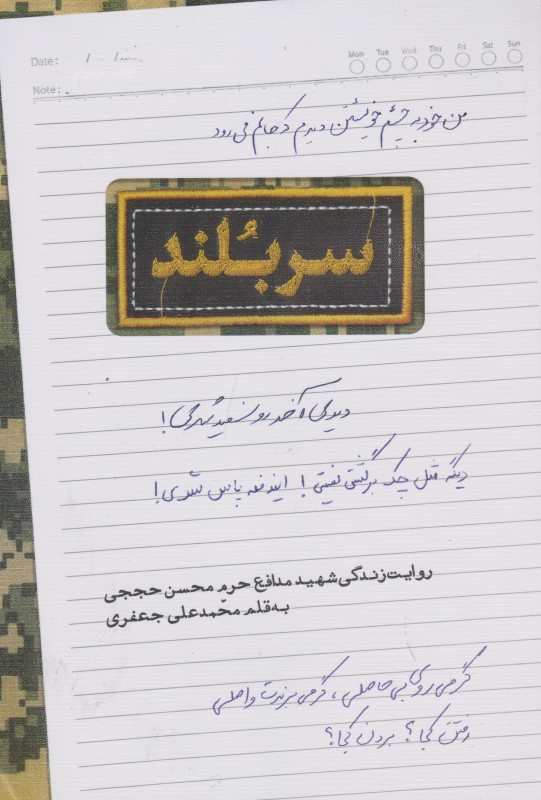 Date:
Mon Tue Wed Thu Fri Sat Sun
Note:
من خود به چشم خویشتن دیدم که جانم می رود
سربُلند
دیدی آخر رو سفید شدی!
دیگه مثل چک برگشتی نیستی! ایندفعه پاس شدی!
روایت زندگی شهید مدافع حرم محسن حججی
به قلم محمّدعلی جعفری
گر می روی بی حاصلی، گر می برندت واصلی
رفتن کجا؟ بردن کجا؟